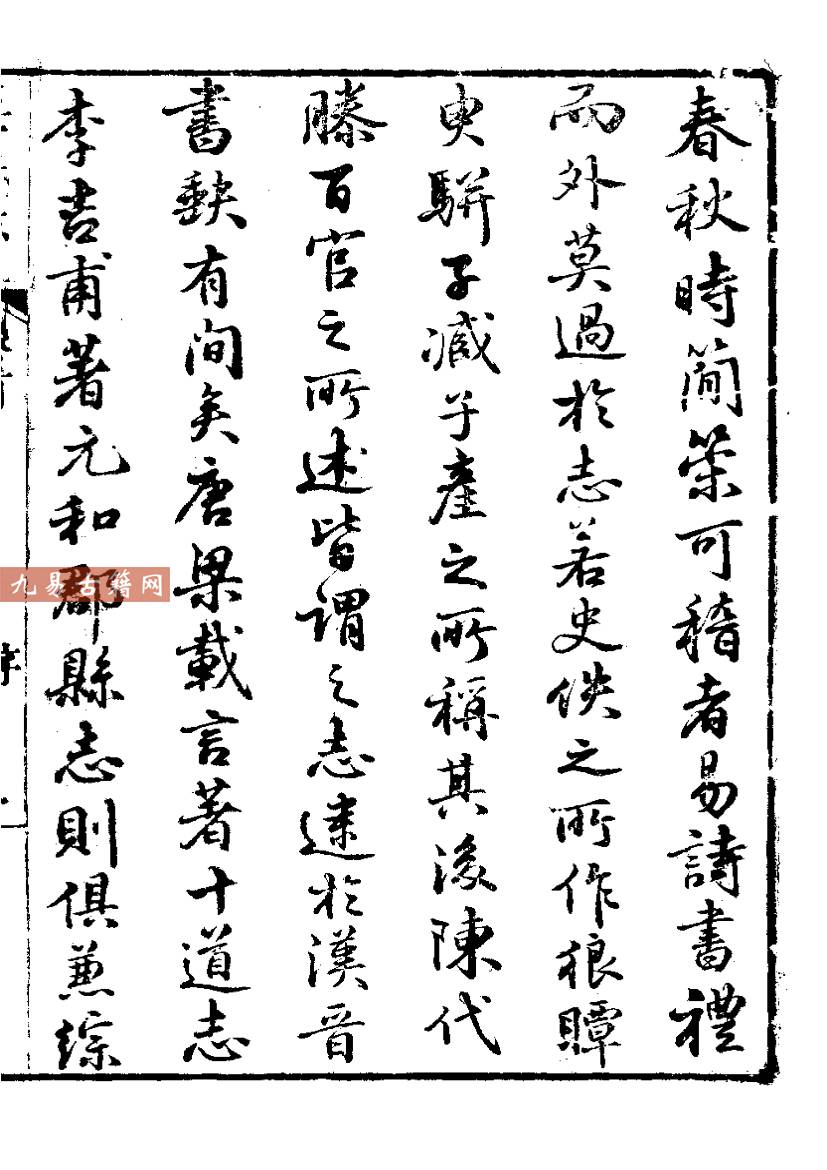 春秋時簡策可稽者易詩書禮
而外莫過於志若史佚之所作狼瞫
史駢子臧子產之所稱其後陳代
滕百官之所述皆謂之志逮於漢晉
書缺有間矣唐梁載言著十道志
李吉甫著元和郡縣志則俱兼綜
九易古籍网